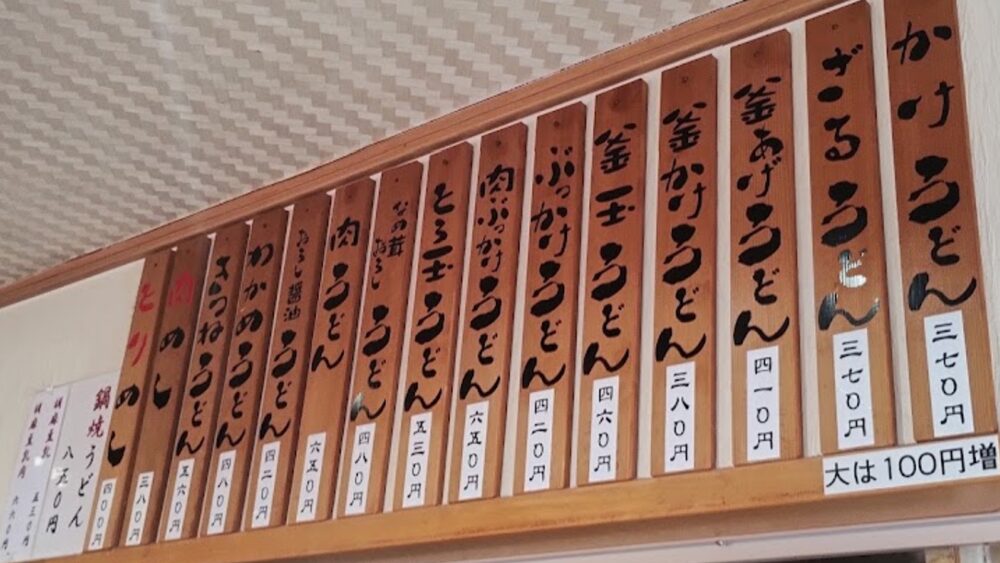 かけうどん 三七0円
ざるうどん 三七0円
釜あげうどん 四一0円
釜かけうどん 三八0円
釜玉うどん 四六0円
ぶっかけうどん 四二0円
肉ぶっかけうどん 六五0円
とろ玉うどん 五三0円
なめ茸おろしうどん 四八0円
肉うどん 六五0円
おろし醤油うどん 四二0円
わかめうどん 四八0円
きつねうどん 五六0円
肉めし 三八0円
とりめし 四00円
鍋焼うどん 八五0円
五三0円
六六0円
大は100円増